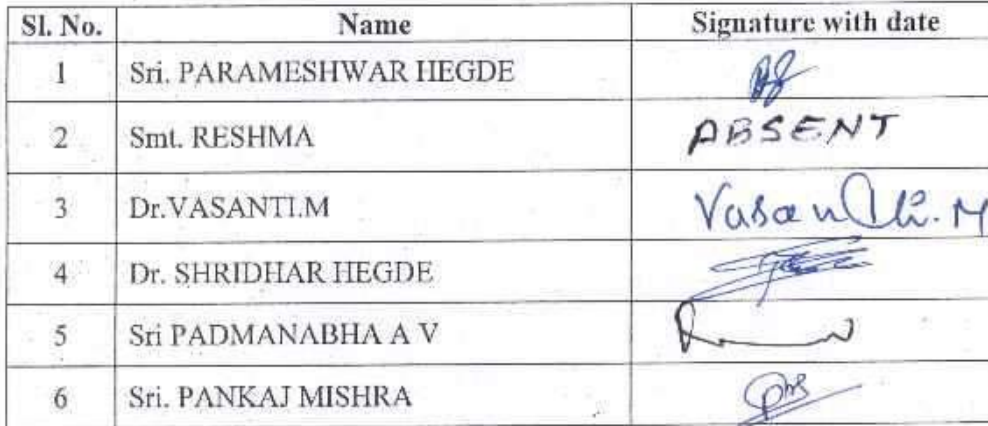 Sl. No. Name Signature with date
1 Sri. PARAMESHWAR HEGDE
2 Smt. RESHMA ABSENT
3 Dr.VASANTI.M Vasanthi.M
4 Dr. SHRIDHAR HEGDE
5 Sri PADMANABHA A V
6 Sri. PANKAJ MISHRA